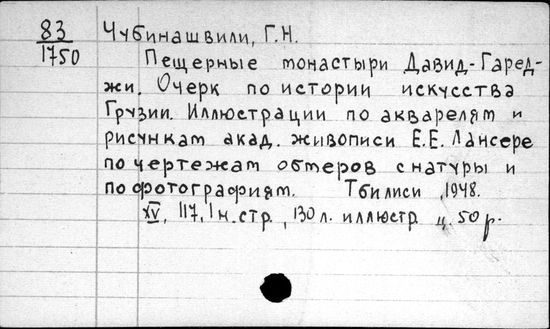 83 Чубинашвили, Г.Н.
1750 Пещерные монастыри Давид-Гаред-
жи. Очерк по истории искусства
Грузии. Иллюстрации по акварелям и
рисункам акад. живописи Е.Е. Лансере
по чертежам обмеров с натуры и
по фотографиям. Тбилиси, 1948.
XV, 117, 1 н. стр., 130 л. иллюстр. ц. 50 р.